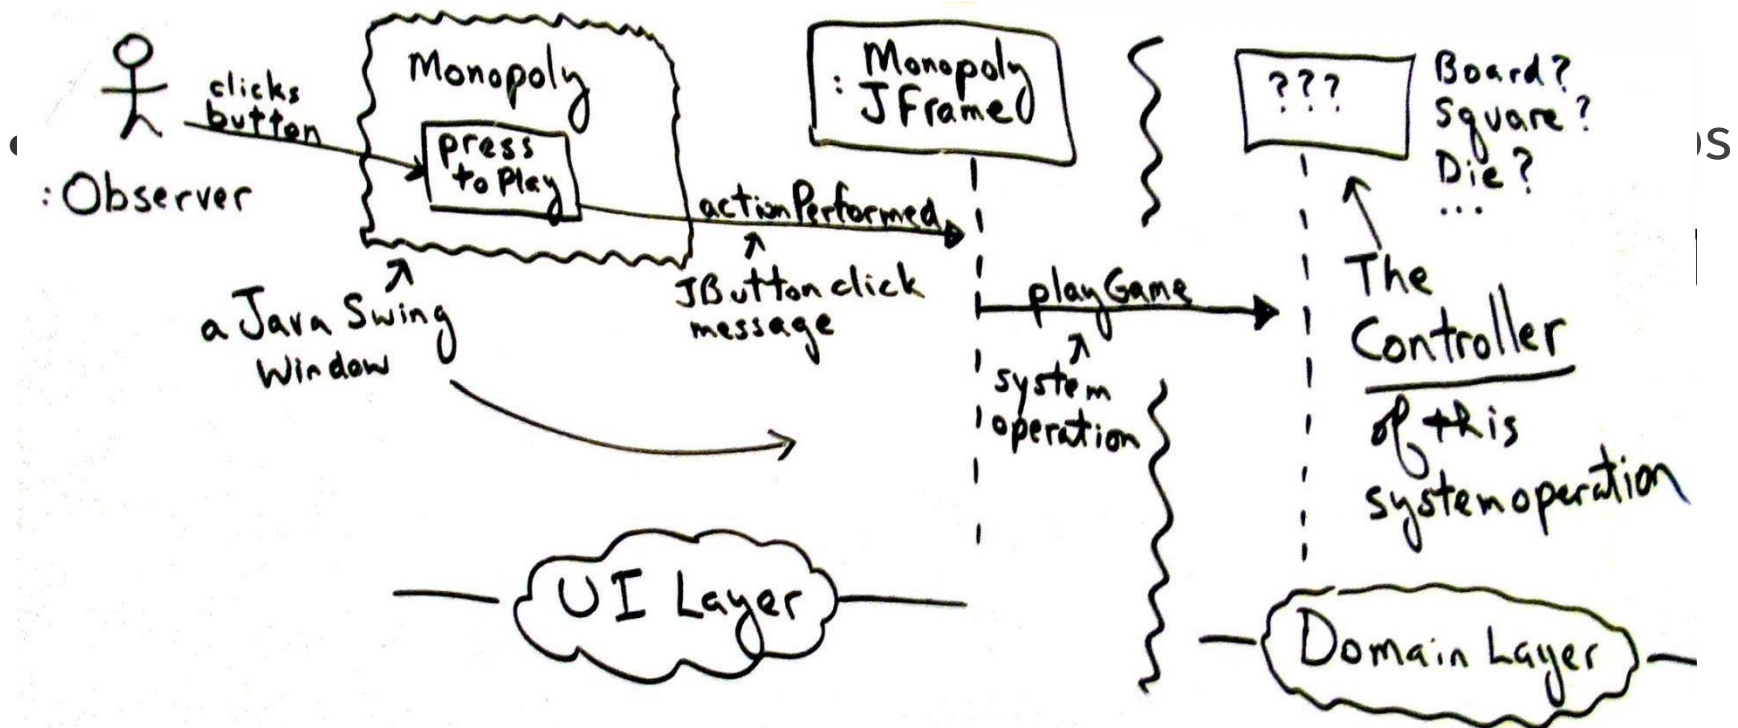 clicks
button
: Observer
Monopoly
press
to Play
a Java Swing
Window
actionPerformed
JButton click
message
Monopoly
: JFrame
playGame
system
operation
???
Board?
Square?
Die?
...
The
Controller
of this
system operation
UI Layer
Domain Layer